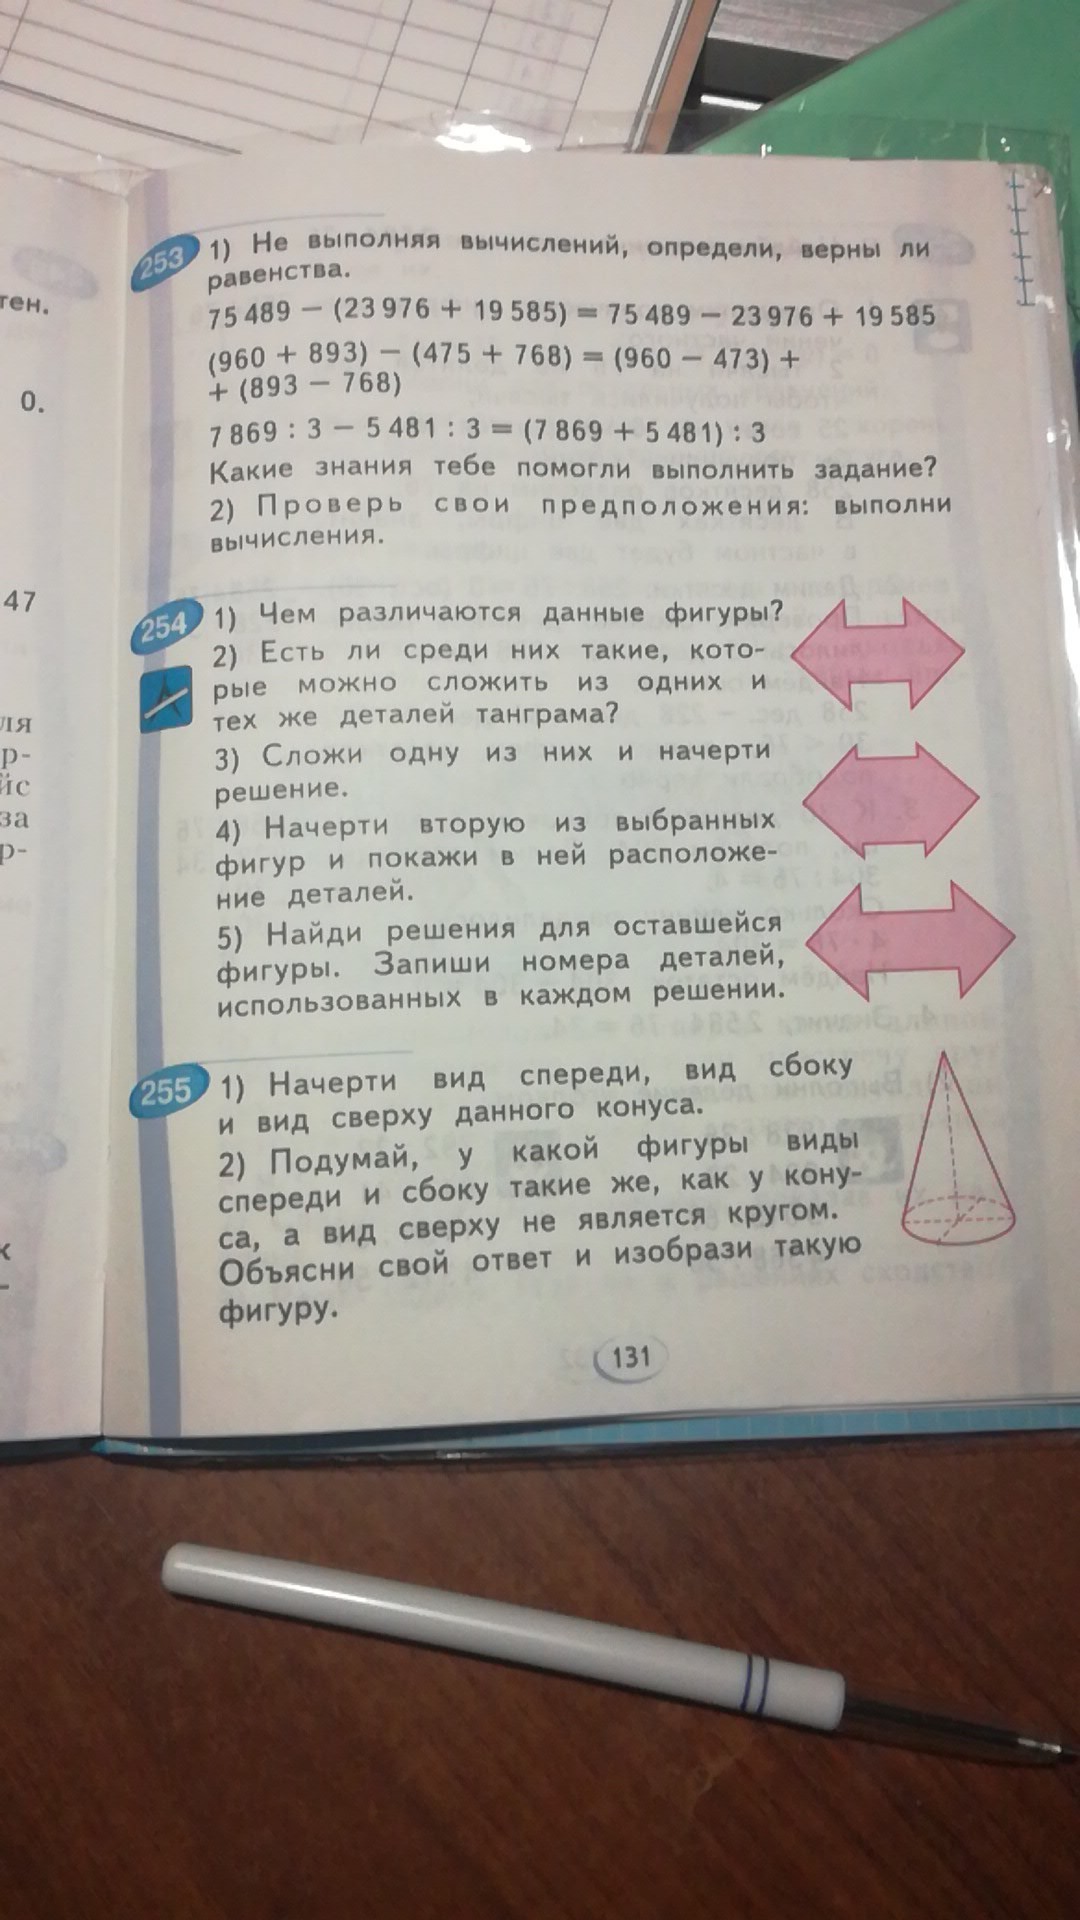 тен.
0.
47
ля
р-
йс
за
р-
к
253 1) Не выполняя вычислений, определи, верны ли
равенства.
75 489 − (23 976 + 19 585) = 75 489 − 23 976 + 19 585
(960 + 893) − (475 + 768) = (960 − 473) +
+ (893 − 768)
7 869 : 3 − 5 481 : 3 = (7 869 + 5 481) : 3
Какие знания тебе помогли выполнить задание?
2) Проверь свои предположения: выполни
вычисления.
254 1) Чем различаются данные фигуры?
2) Есть ли среди них такие, кото-
рые можно сложить из одних и
тех же деталей танграма?
3) Сложи одну из них и начерти
решение.
4) Начерти вторую из выбранных
фигур и покажи в ней расположе-
ние деталей.
5) Найди решения для оставшейся
фигуры. Запиши номера деталей,
использованных в каждом решении.
255 1) Начерти вид спереди, вид сбоку
и вид сверху данного конуса.
2) Подумай, у какой фигуры виды
спереди и сбоку такие же, как у кону-
са, а вид сверху не является кругом.
Объясни свой ответ и изобрази такую
фигуру.
131